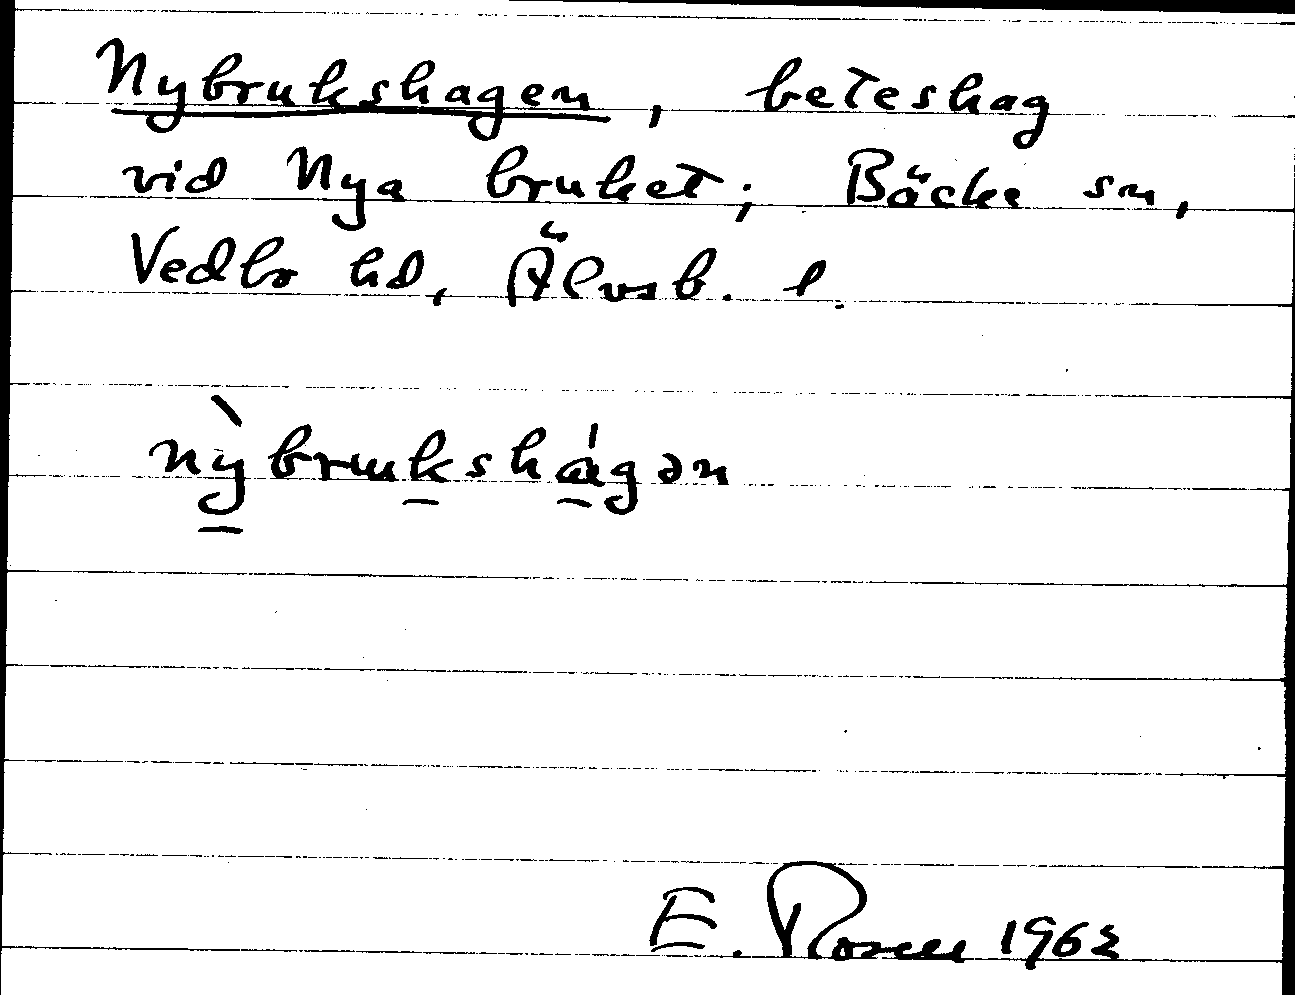 Nybrukshagen, beteshag
vid Nya bruket; Bäcke sn,
Vedbo hd, Älvsb. l.
nỳbrukshágən
E. Rosell 1962